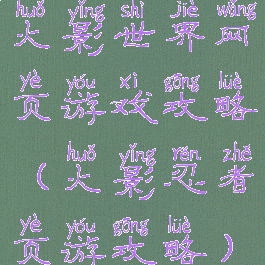 huǒ yǐng shì jiè wǎng
火影世界网
yè yóu xì gōng lüè
页游戏攻略
huǒ yǐng rěn zhě
(火影忍者
yè yóu gōng lüè
页游攻略)